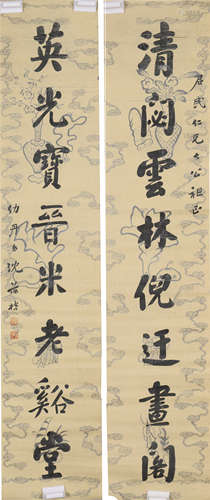 仁兄大公祖正
清閟雲林倪迂畫閣
英光寶晉米老谿堂
幼丹弟沈葆楨